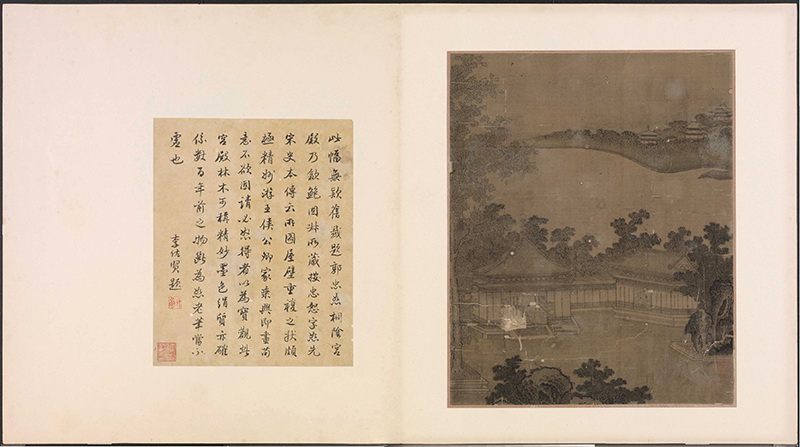 此幅無款舊籤題郭忠恕桐陰宮
殿乃歙鮑固叔所藏按忠恕字恕先
宋史本傳云所圖屋壁重複之狀頗
極精妙游王侯公卿家乘興即畫苟
意不欲固請必怒得者以為寶觀此
宮殿林木可稱精妙墨色絹質亦確
係數百年前之物斷為恕老筆當不
虛也
李佐賢題